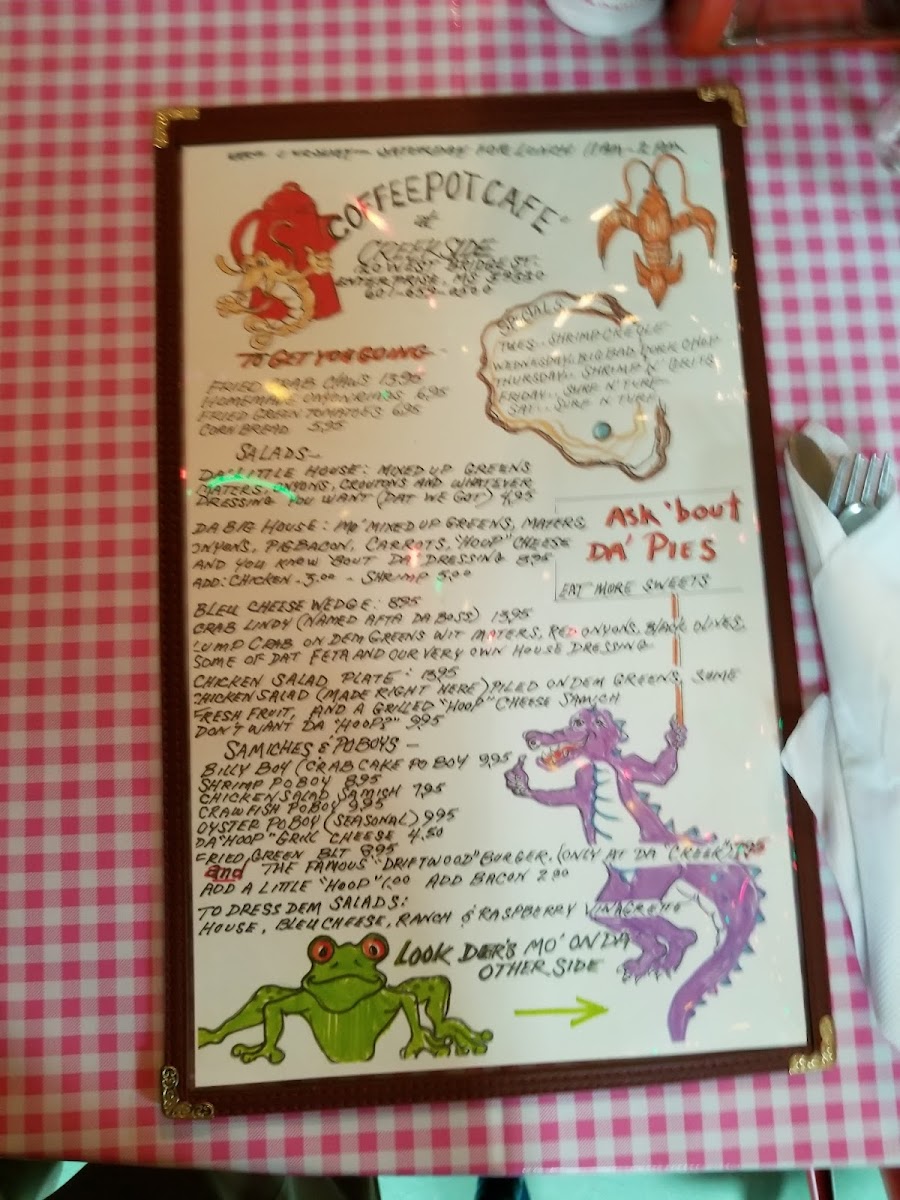 SATURDAY FOR LUNCH 11AM - 2 PM
COFFEEPOT CAFE
at
CREEKSIDE
20 WEST BRIDGE ST.
ENTERPRISE, MS 39330
601-659-0500
SPECIALS
TUES.. SHRIMP CREOLE
WEDNESDAY. BIG BAD PORK CHOP
THURSDAY.. SHRIMP N' GRITS
FRIDAY.. SURF N' TURF
SAT.. SURF N TURF
TO GET YOU GOING
FRIED CRAB CLAWS 13.95
HOMEMADE ONYON RINGS 6.95
FRIED GREEN TOMATOES 6.95
CORN BREAD 5.95
SALADS~
DA' LITTLE HOUSE: MIXED UP GREENS
MATERS, ONYONS, CROUTONS AND WHATEVER
DRESSING YOU WANT (DAT WE GOT) 4.95
DA BIG HOUSE: MO' MIXED UP GREENS, MATERS,
ONYONS, PIGBACON, CARROTS, "HOOP" CHEESE
AND YOU KNOW 'BOUT DA' DRESSING 8.95
ADD: CHICKEN - 3.00 - SHRIMP 5.00
ASK 'bout
DA' PIES
EAT MORE SWEETS
BLEU CHEESE WEDGE: 8.95
CRAB LINDY (NAMED AFTA DA BOSS) 13.95
LUMP CRAB ON DEM GREENS WIT MATERS, RED ONYONS, BLACK OLIVES,
SOME OF DAT FETA AND OUR VERY OWN HOUSE DRESSING
CHICKEN SALAD PLATE: 13.95
CHICKEN SALAD (MADE RIGHT HERE) PILED ON DEM GREENS, SOME
FRESH FRUIT, AND A GRILLED "HOOP" CHEESE SAMICH
DON'T WANT DA "HOOP?" 9.95
SAMICHES & POBOYS -
BILLY BOY (CRAB CAKE PO BOY 9.95
SHRIMP PO BOY 8.95
CHICKEN SALAD SAMISH 7.95
CRAWFISH POBOY 9.95
OYSTER PO BOY (SEASONAL) 9.95
DA "HOOP" GRILL CHEESE 4.50
FRIED GREEN BLT 8.95
and THE FAMOUS "DRIFTWOOD" BURGER, (ONLY AT DA "CREEK")
ADD A LITTLE "HOOP" 1.00 ADD BACON 2.00
TO DRESS DEM SALADS:
HOUSE, BLEU CHEESE, RANCH & RASPBERRY VINAGRETTE
LOOK DER'S MO' ON DA
OTHER SIDE